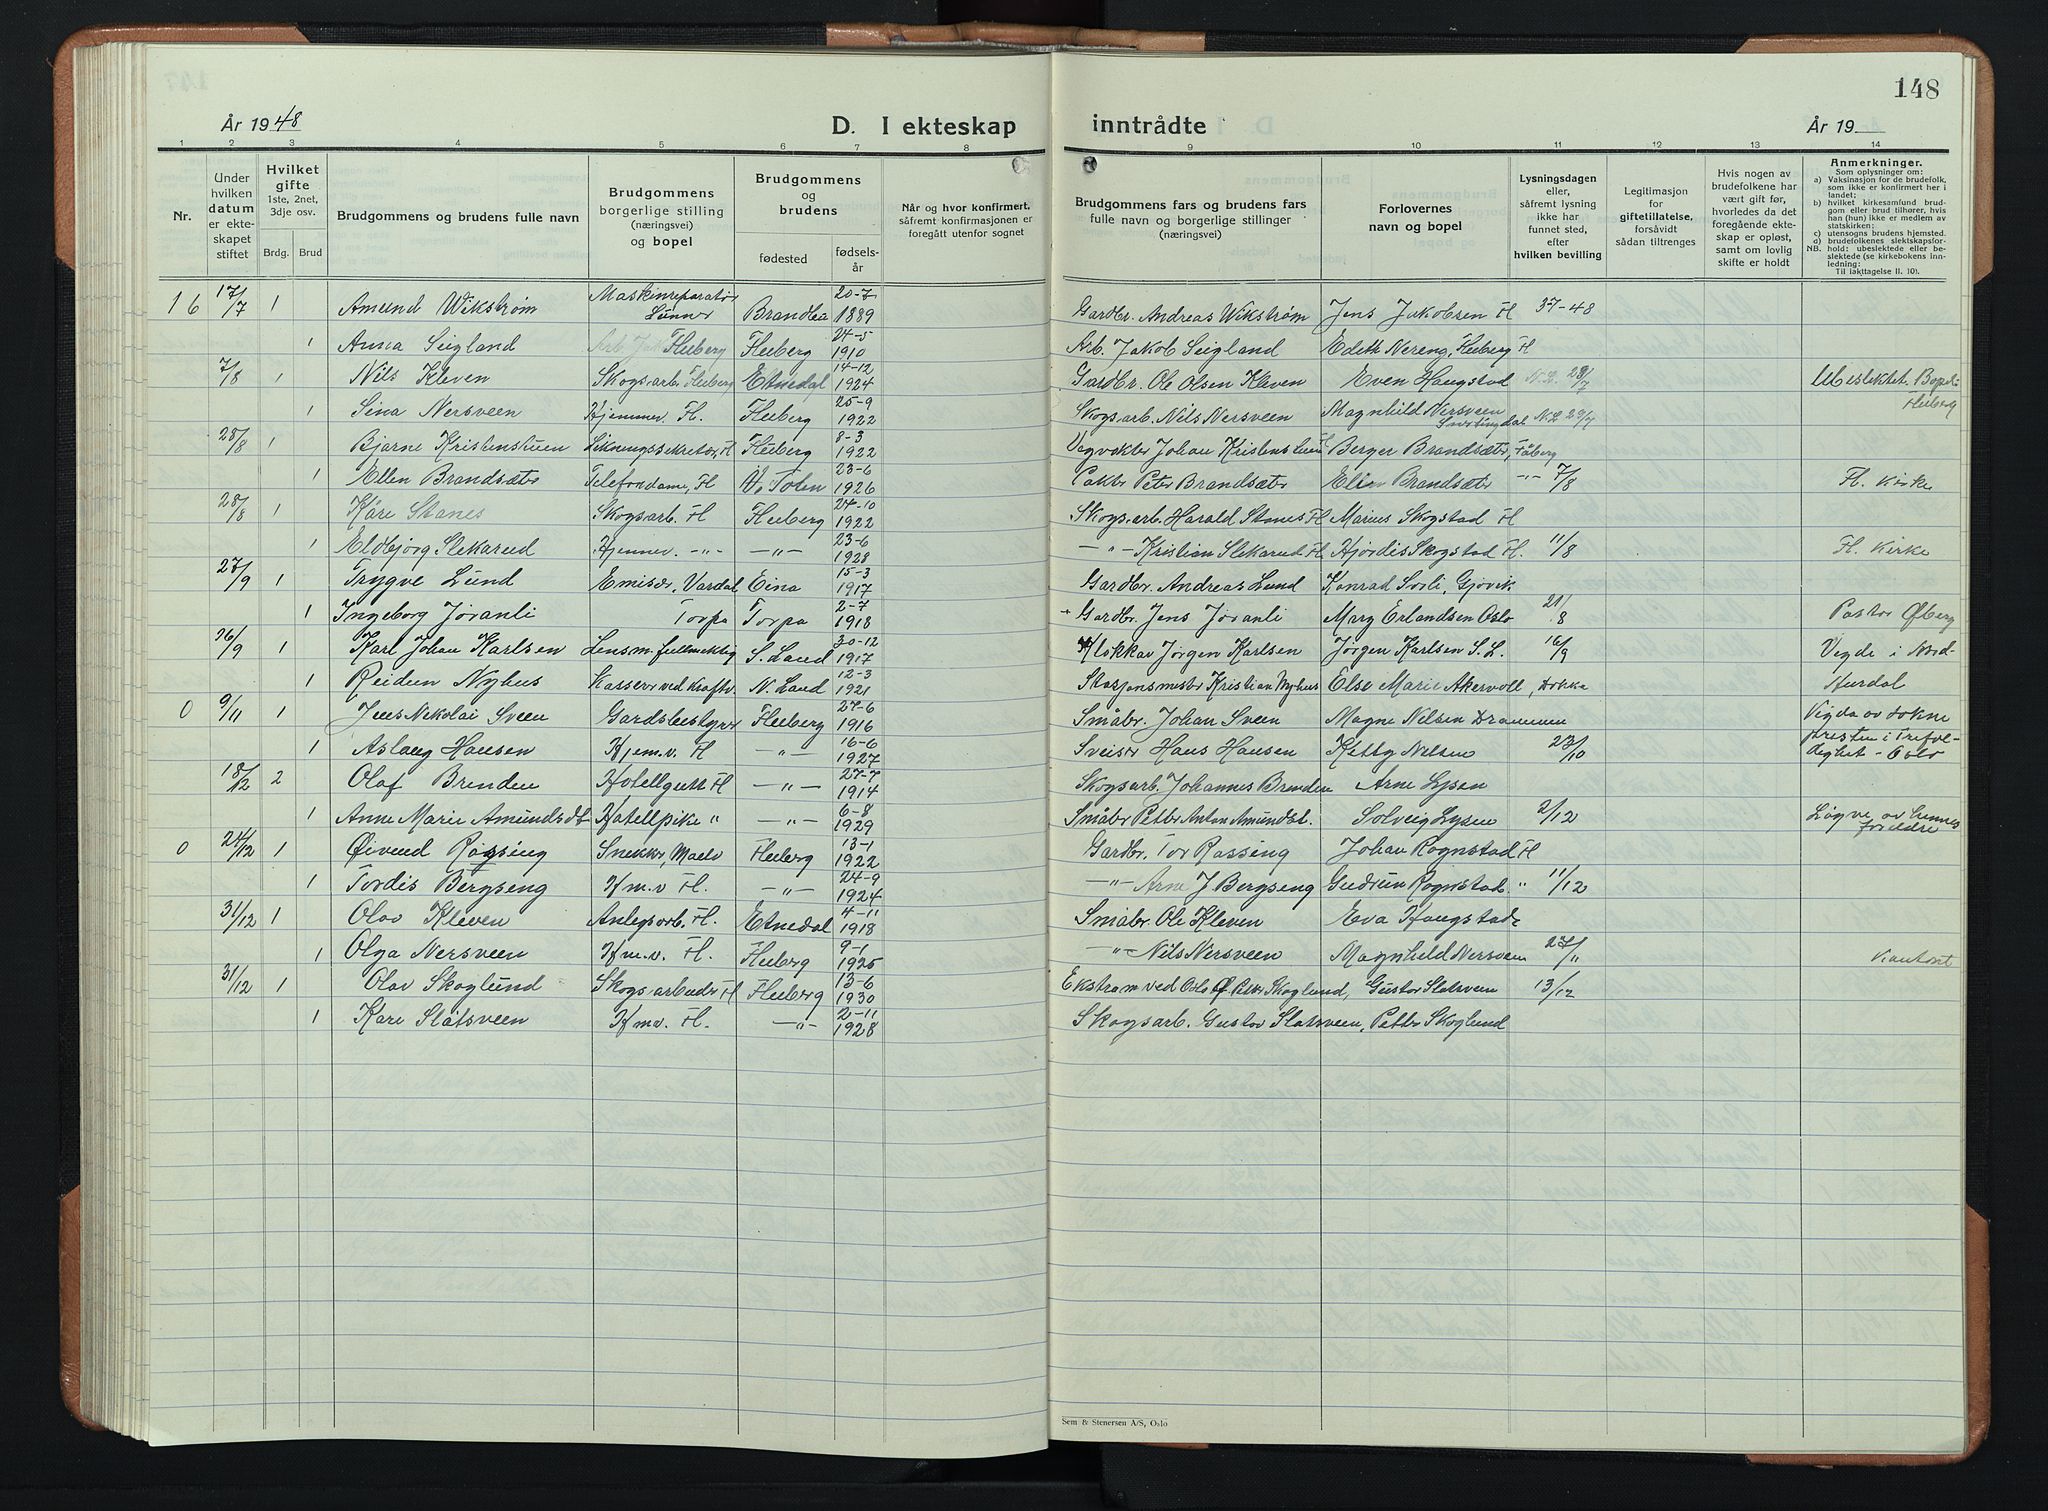 148
År 1948 D. I ekteskap inntrådte År 19
1 2 3 4 5 6 7 8 9 10 11 12 13 14
Nr.
Under hvilken datum er ekteskapet stiftet
Hvilket gifte 1ste, 2net, 3dje osv.
Brdg. Brud
Brudgommens og brudens fulle navn
Brudgommens borgerlige stilling (næringsvei) og bopel
Brudgommens og brudens
fødested fødselsår
Når og hvor konfirmert. såfremt konfirmasjonen er foregått utenfor sognet
Brudgommens fars og brudens fars fulle navn og borgerlige stillinger (næringsvei)
Forlovernes navn og bopel
Lysningsdagen eller, såfremt lysning ikke har funnet sted, efter hvilken bevilling
Legitimasjon for giftetillatelse, forsåvidt sådan tiltrenges
Hvis nogen av brudefolkene har vært gift før, hvorledes da det foregående ekteskap er opløst, samt om lovlig skifte er holdt
Anmerkninger.
Som oplysninger om:
a) Vaksinasjon for de brudefolk, som ikke er konfirmert her i landet;
b) hvilket kirkesamfund brudgom eller brud tilhører, hvis han (hun) ikke er medlem av statskirken;
c) utensogns brudens hjemsted.
d) brudefolkenes slektskapsforhold: ubeslektede eller beslektede (se kirkebokens innledning:
NB. Til iakttagelse II. 10).
16 17/7 1 Amund Wikstrøm Maskinreparatør Lunner Brandbu 20-7 1889 Gardbr. Andreas Wikstrøm Jens Jakobsen Fl 3-7-48
1 Anna Seigland Fluberg Fluberg 24-5 1910 Arb. Jakob Seigland Edith Nereng, Fluberg Fl
7/8 1 Nils Kleven Skogsarb. Fluberg Etnedal 14-12 1924 Gardbr. Ole Olsen Kleven Even Haugstad N.L. 28/7 Ubeslektet. Bopel: Fluberg
1 Sina Nersveen Hjemmev. Fl. Fluberg 25-9 1922 Skogsarb. Nils Nersveen Magnhild Nersveen Snertingdal N.L 29/7
28/8 1 Bjarne Kristenstuen Likningssekretær, Fl Fluberg 8-3 1922 Vegvokter Johan Kristenstuen Berger Brandsæter, Fåberg
1 Ellen Brandsæter Telefondame, Fl V. Toten 23-6 1926 Peter Brandsæter Brandsæter -"- 7/8 Fl. Kirke
28/8 1 Kåre Stanes Skogsarb. Fl Fluberg 24-10 1922 Skogsarb. Harald Stanes Fl Marius Skogstad Fl
1 Eldbjørg Slekarud Hjemmev. -"- -"- 23-6 1928 -"- Kristian Slekarud Fl Hjørdis Skogstad Fl. 11/8 Fl. Kirke
27/9 1 Trygve Lund Emisær, Vardal Eina 15-3 1917 Gardbr. Andreas Lund Konrad Sørli, Gjøvik
1 Ingeborg Jøranli Torpa Torpa 2-7 1918 Gardbr. Jens Jøranli Mary Erlandsen Oslo 21/8 Pastor Øfberg
16/9 1 Karl Johan Karlsen Lensm. fullmektig S. Land 30-12 1917 Klokkar Jørgen Karlsen Jørgen Karlsen S. L. 16/9 Vigde i Nord-
1 Reidun Nyhus Kasserer ved Kraftv. N. Land 12-3 1921 Stasjonsmester Kristian Nyhus Else Marie Akervoll, Dokka Aurdal
0 9/11 1 Jens Nikolai Sveen Gardsbestyrer Fluberg 27-6 1916 Småbr. Johan Sveen Magne Nilsen Drammen Vigda av sokne
1 Aslaug Hansen Hjem.v. Fl -"- 16-6 1927 Sveiser Hans Hansen Kitty Nilsen 23/10 presten i Trefol- dighet - Oslo
18/12 2 Olaf Brenden Hotellgutt Fl -"- 27-7 1914 Skogsarb. Johannes Brenden Arne Lysen
1 Anne Marie Amundsdt. Hotellpike " -"- 6-8 1929 Småbr. Petter Anton Amundst. Solveig Lysen 2/12 av hennes foreldre
0 24/12 1 Øivind Røssing Snekker, Fluberg 13-1 1922 Gardbr. Tor Røssing Johan Rognstad Fl
1 Tordis Bergseng Hm.v Fl. -"- 24-9 1924 -"- Arne J Bergseng Gudrun Rognstad " 11/12
31/12 1 Olav Kleven Anlegsarb. Fl. Etnedal 4-11 1918 Småbr. Ole Kleven Eva Haugstad
1 Olga Nersveen Hm.v. Fl. Fluberg 9-1 1925 -"- Nils Nersveen Magnhild Nersveen 27/11
31/12 1 Olav Skoglund Skogsarbeider Fl Fluberg 13-6 1930 Ekstram ved Oslo Petter Skoglund, Gustav Slåtsveen 13/12
1 Kari Slåtsveen Hmv. Fl. -"- 2-11 1928 Skogsarb. Gustav Slåtsveen, Petter Skoglund
Sem & Stenersen A/S, Oslo